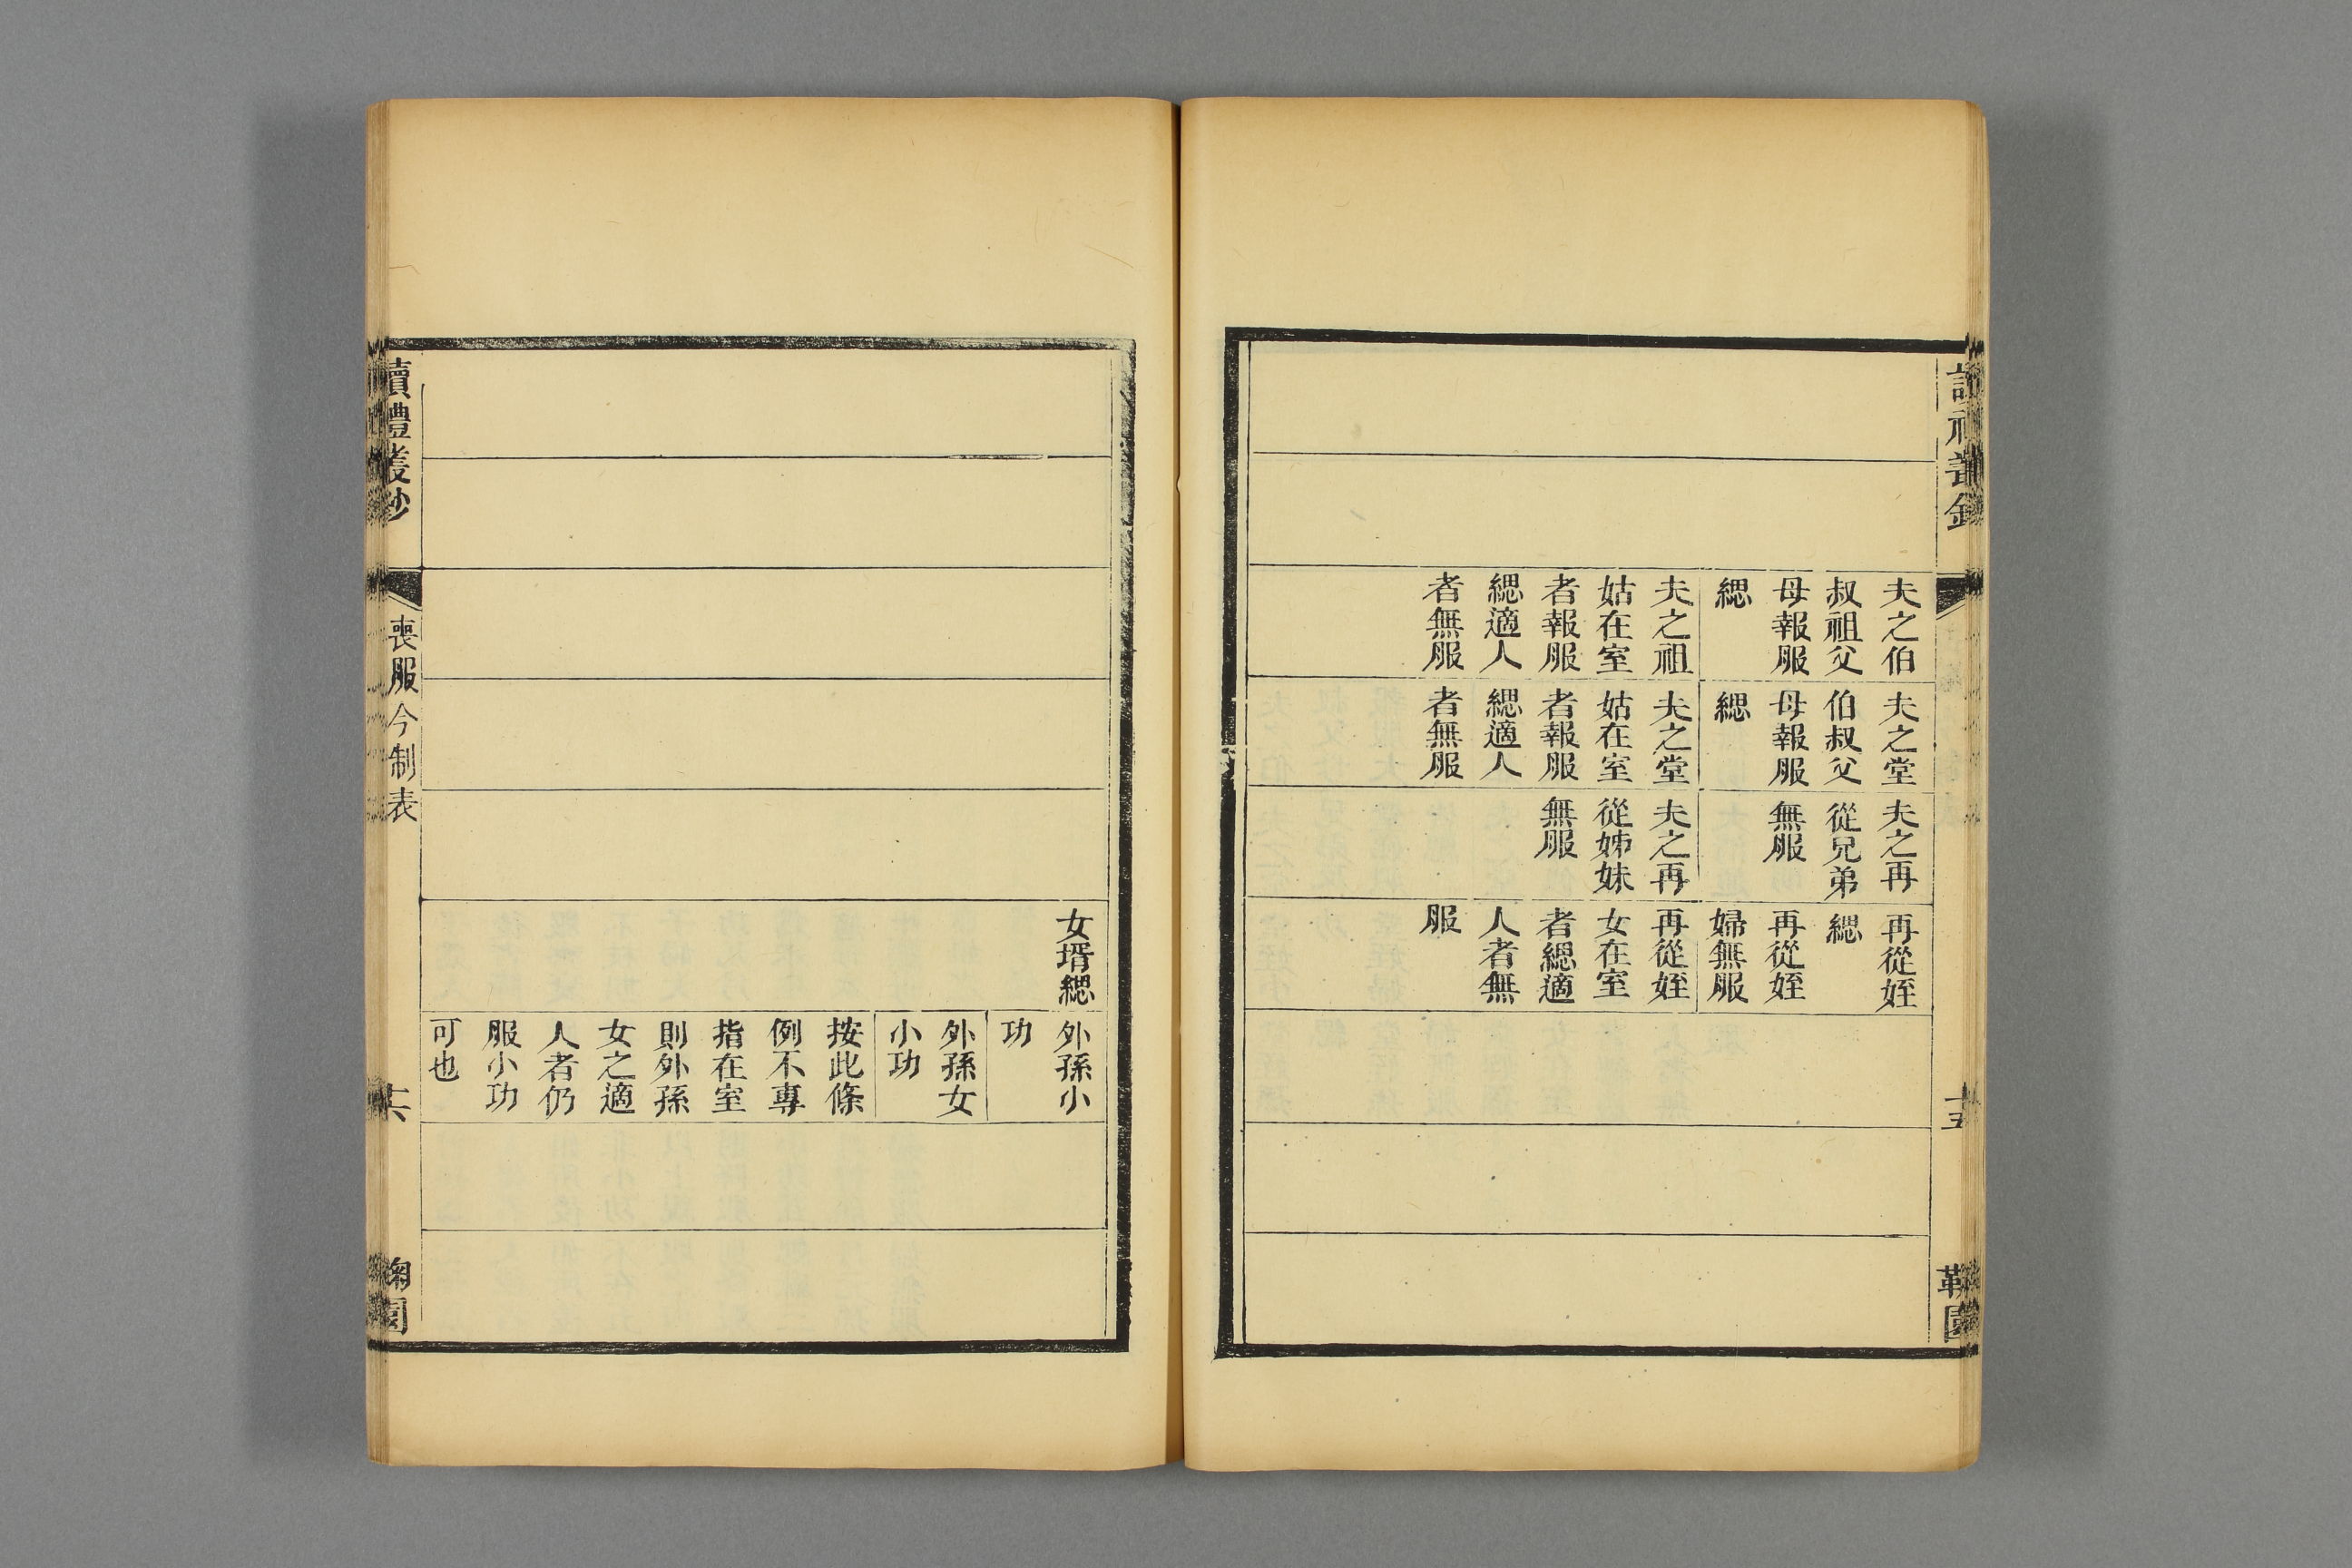 夫之伯
叔祖父
母報服
緦
夫之祖
姑在室
者報服
緦適人
者無服
夫之堂
伯叔父
母報服
緦
夫之堂
姑在室
者報服
緦適人
者無服
夫之再
從兄弟
無服
夫之再
從姊妹
無服
再從姪
緦
再從姪
婦無服
再從姪
女在室
者緦適
人者無
服
十五
女壻緦
外孫小
功
外孫女
小功
按此條
例不專
指在室
則外孫
女之適
人者仍
服小功
可也
讀禮叢鈔
喪服今制表
十六